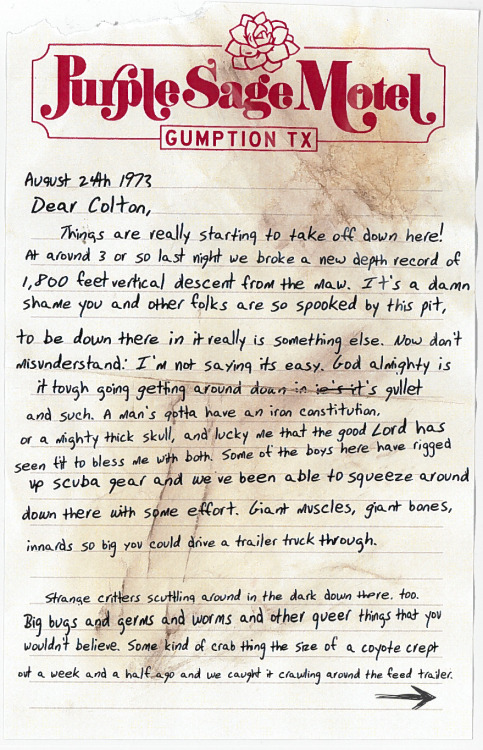 Purple Sage Motel
GUMPTION TX
August 24th 1973
Dear Colton,
Things are really starting to take off down here!
At around 3 or so last night we broke a new depth record of
1,800 feet vertical descent from the maw. It's a damn
shame you and other folks are so spooked by this pit,
to be down there in it really is something else. Now don't
misunderstand: I'm not saying its easy. God almighty is
it tough going getting around down in ie's it's gullet
and such. A man's gotta have an iron constitution,
or a mighty thick skull, and lucky me that the good Lord has
seen fit to bless me with both. Some of the boys here have rigged
up scuba gear and we've been able to squeeze around
down there with some effort. Giant muscles, giant bones,
innards so big you could drive a trailer truck through.
Strange critters scuttling around in the dark down there. too.
Big bugs and germs and worms and other queer things that you
wouldn't believe. Some kind of crab thing the size of a coyote crept
out a week and a half ago and we caught it crawling around the feed trailer.